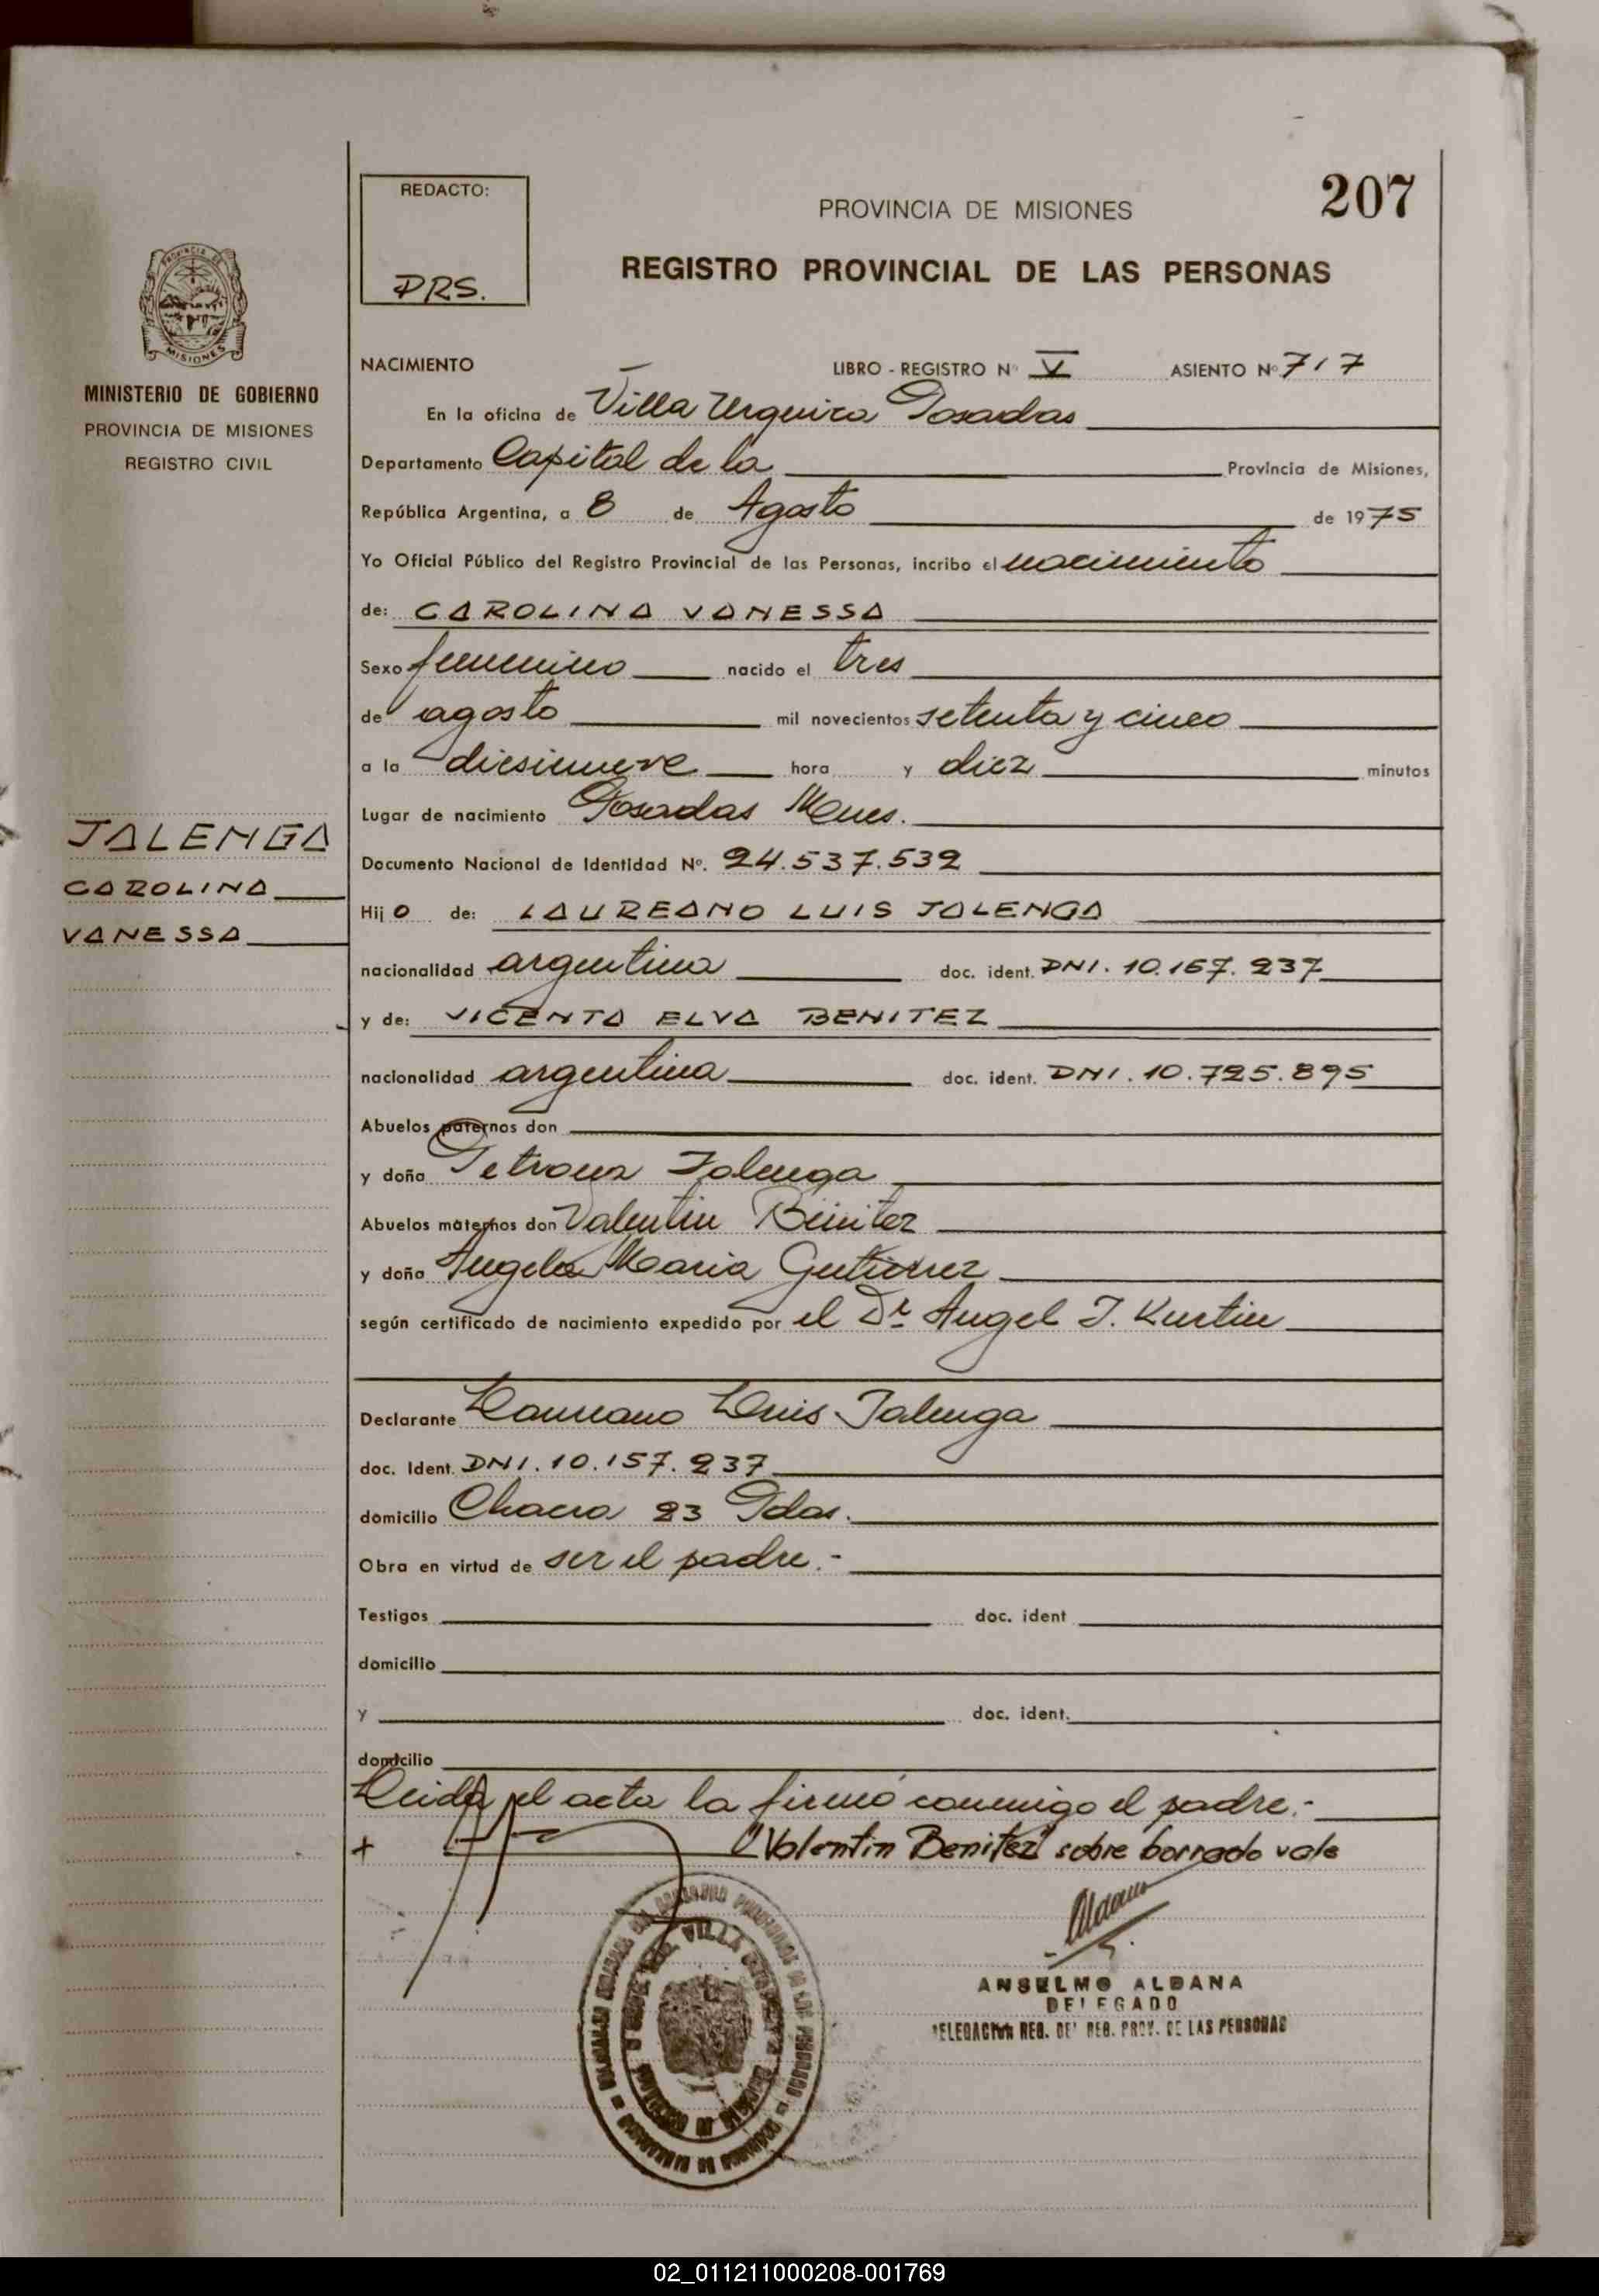 207
REDACTO:
PRS.
PROVINCIA DE MISIONES
REGISTRO PROVINCIAL DE LAS PERSONAS
MISIONES
MINISTERIO DE GOBIERNO
PROVINCIA DE MISIONES
REGISTRO CIVIL
JALENGA
CAROLINA
VANESSA
NACIMIENTO LIBRO - REGISTRO Nº V ASIENTO Nº 717
En la oficina de Villa Urquiza Posadas
Departamento Capital de la Provincia de Misiones,
República Argentina, a 8 de Agosto de 1975
Yo Oficial Público del Registro Provincial de las Personas, incribo el nacimiento
de: CAROLINA VANESSA
Sexo femenino nacido el tres
de agosto mil novecientos setenta y cinco
a la diesinueve hora y diez minutos
Lugar de nacimiento Posadas Mnes.
Documento Nacional de Identidad Nº. 24.537.532
Hij o de: LAUREANO LUIS JALENGA
nacionalidad argentina doc. ident. DNI. 10.157.237
y de: VICENTA ELVA BENITEZ
nacionalidad argentina doc. ident. DNI. 10.725.895
Abuelos paternos don
y doña Petrona Jalenga
Abuelos maternos don Valentin Benitez
y doña Angela Maria Gutierrez
según certificado de nacimiento expedido por el Dr. Angel J. Kurtin
Declarante Laureano Luis Jalenga
doc. Ident. DNI. 10.157.237
domicilio Chacra 23 Pdas.
Obra en virtud de ser el padre.-
Testigos doc. ident
domicilio
y doc. ident.
domicilio
Leida el acta la firmó conmigo el padre.-
+ "Valentin Benitez" sobre borrado vale
ANSELMO ALDANA
DELEGADO
DELEGACION REG. DEL REG. PROV. DE LAS PERSONAS
02_011211000208-001769